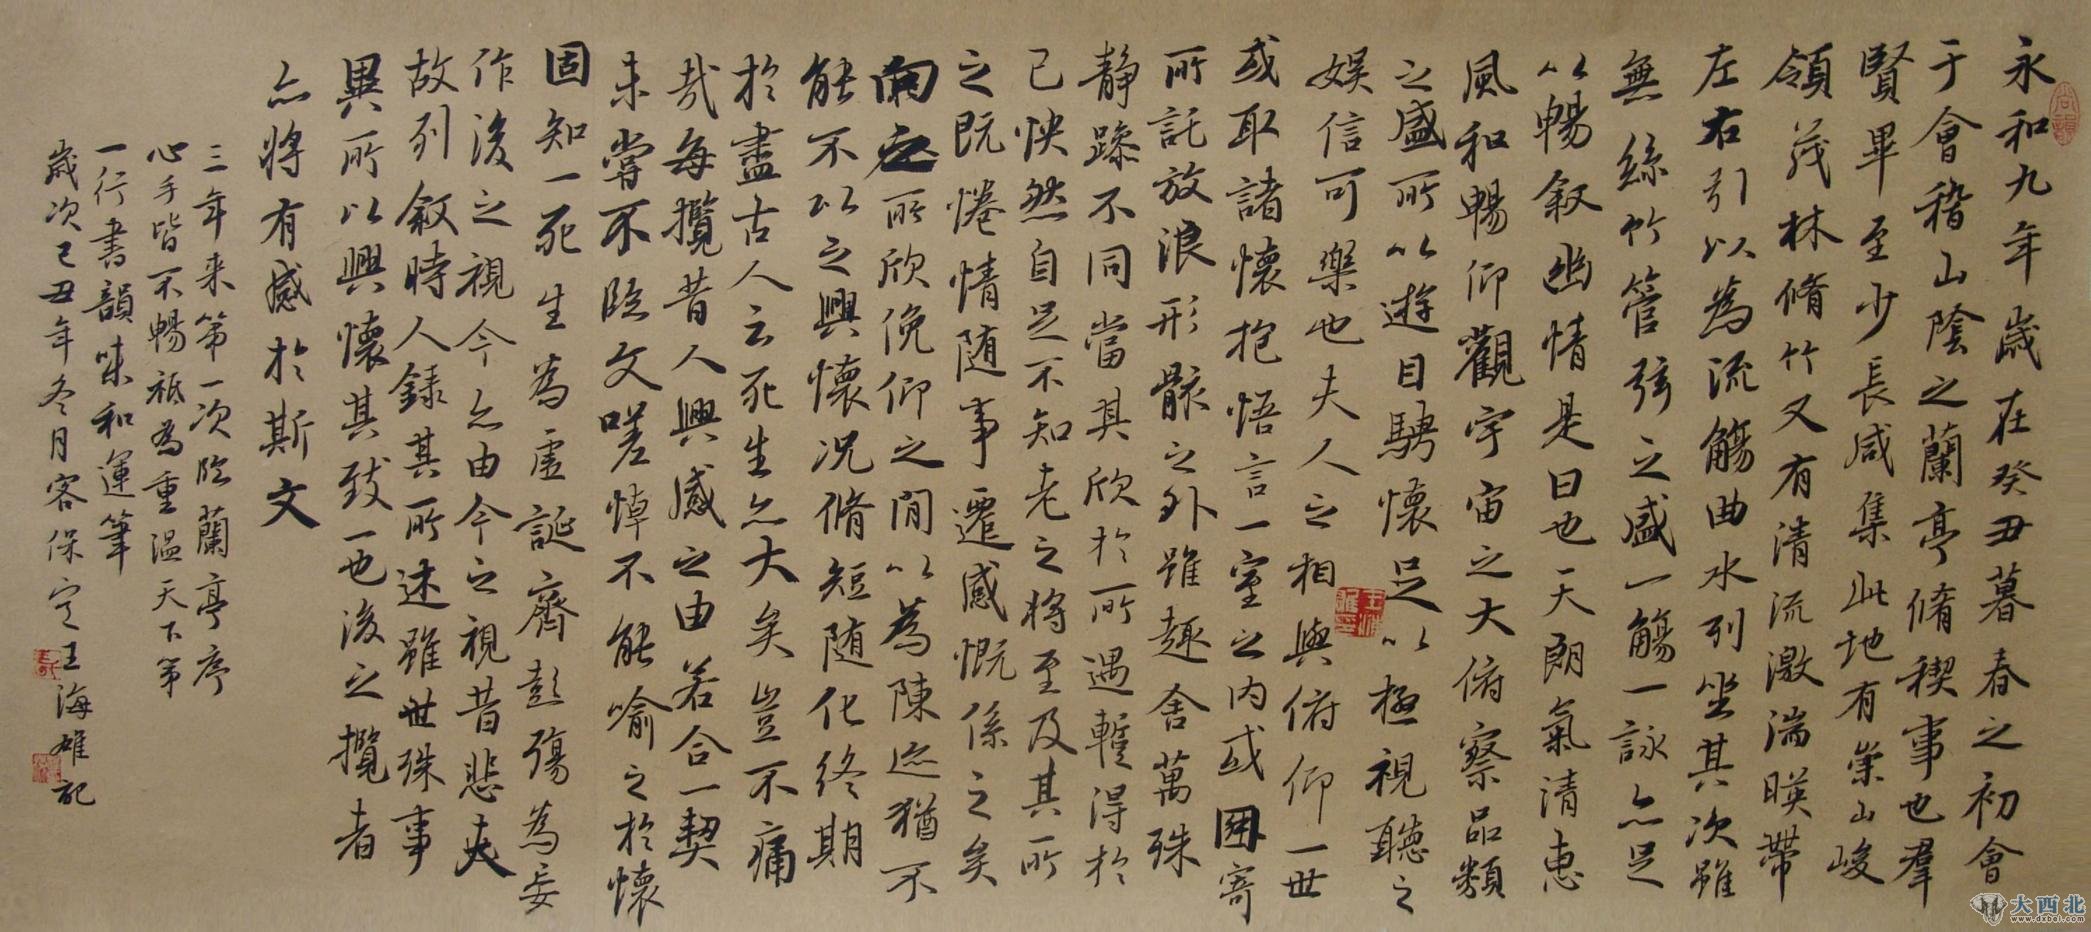 永和九年歲在癸丑暮春之初會
于會稽山陰之蘭亭脩稧事也羣
賢畢至少長咸集此地有崇山峻
領茂林脩竹又有清流激湍暎帶
左右引以為流觴曲水列坐其次雖
無絲竹管弦之盛一觴一詠亦足
以暢叙幽情是日也天朗氣清惠
風和暢仰觀宇宙之大俯察品類
之盛所以遊目騁懷足以極視聽之
娛信可樂也夫人之相與俯仰一世
或取諸懷抱悟言一室之內或因寄
所託放浪形骸之外雖趣舍萬殊
靜躁不同當其欣於所遇暫得於
己怏然自足不知老之將至及其所
之既惓情随事遷感慨係之矣
向之所欣俛仰之閒以為陳迹猶不
能不以之興懷况脩短随化終期
於盡古人云死生亦大矣豈不痛
哉每攬昔人興感之由若合一契
未嘗不臨文嗟悼不能喻之於懷
固知一死生為虛誕齊彭殤為妄
作後之視今亦由今之視昔悲夫
故列叙時人錄其所述雖世殊事
異所以興懷其致一也後之攬者
亦將有感於斯文
三年来第一次臨蘭亭序
心手皆不暢祗為重溫天下第
一行書韻味和運筆
歲次己丑年冬月客保定王海雄記
大西北
www.dxbei.com